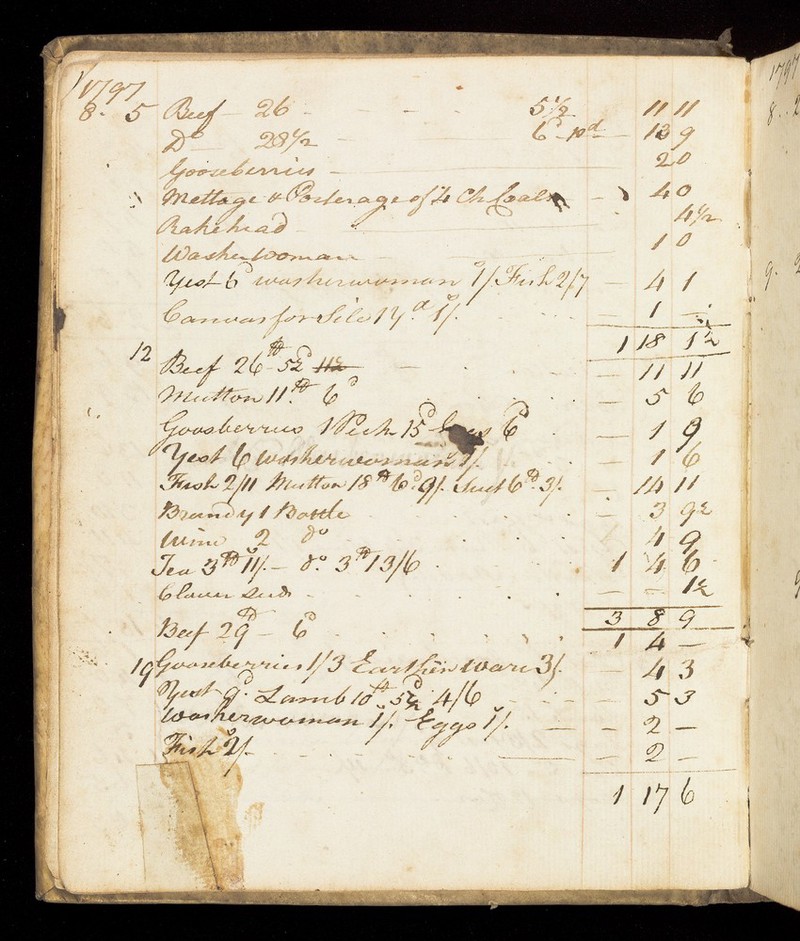 1797
8. 5 Beef 26 - - - - 5½ 11 11
Do 28½ 6d 10d 13 9
Gooseberries 2 0
Mettage & Porterage of 4 Ch Coals 4 0
Rakehead 4½
Washerwoman 1 0
Yest 6d washerwoman 1/. Fish 2/7 4 1
Canvas for 1/. 1 -
1 18 1½
12 Beef 26 lb 5½d 11 11
Mutton 11 lb 6d 5 6
Goosberries 1 Peck 15d Eggs 6d 1 9
Yest 6 washerwoman 1/. 1 6
Fish 2/11 Mutton 18 lb 6d. 9/. Suet 6d. 3/. 14 11
Brandy 1 Bottle 3 9½
Wine 2 do 4 9
Tea 3 lb 11/. - do. 3 lb 13/6 1 4 6
Clover seed - - 1½
3 8 9
Beef 29 - 6d 1 4 -
19 Gooseberries 1/3 Earthen ware 3/. 4 3
Yest 9d. Lamb 10 lb 5½ 4/6 5 3
Washerwoman 1/. Eggs 1/. - - 2 -
Fish 2/- 2 -
1 17 6
1797
8. 2
9. 2